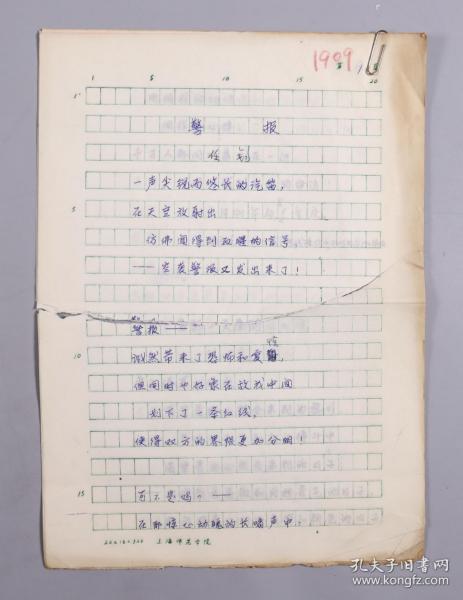 1909
1 5 10 15 20
警报
任钧
一声尖锐而悠长的汽笛,
在天空放射出
仿佛闻得到血腥的信号
——空袭警报又发出来了!
警报——
诚然带来了恐怖和
但同时也好象在敌我中间
划下了一条红线,
使得双方的界限更加分明!
可不是吗?——
在那惊心动魄的长鸣声中,
上海师范学院
孔夫子旧书网
www.kongfz.com